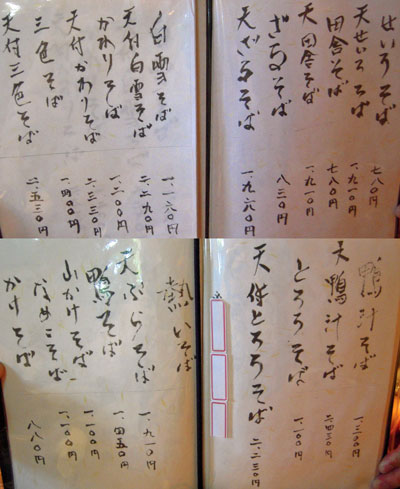 せいろそば 七八〇円
天せいろそば 一、九一〇円
田舎そば 七八〇円
天田舎そば 一、九一〇円
ざるそば 八三〇円
天ざるそば 一、九六〇円
白雪そば 一、一六〇円
天付白雪そば 二、二九〇円
かわりそば 一、二〇〇円
天付かわりそば 二、三三〇円
三色そば 一、四〇〇円
天付三色そば 二、五三〇円
鴨汁そば 一、三〇〇円
天鴨汁そば 二、四三〇円
とろろそば 一、一〇〇円
天付とろろそば 二、二三〇円
熱いそば
天ぷらそば 一、九一〇円
鴨そば 一、四五〇円
山かけそば 一、一〇〇円
なめこそば 一、一〇〇円
かけそば 八八〇円